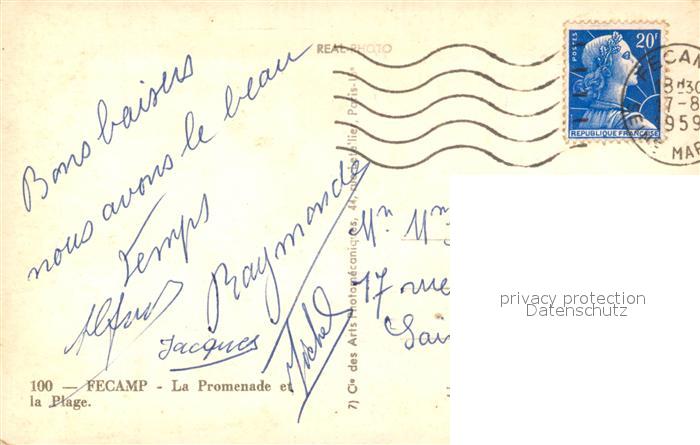 REAL PHOTO
POSTES
20F
REPUBLIQUE FRANÇAISE
FECAM
8H30
7-8
1959
MAR
Bons baisers
nous avons le beau
temps
Alfred
Raymonde
Jacques
Michel
100 — FECAMP - La Promenade et
la Plage.
Cie des Arts Photomécaniques, 44,
Paris
Mr Mme
17 rue
Sain
privacy protection
Datenschutz